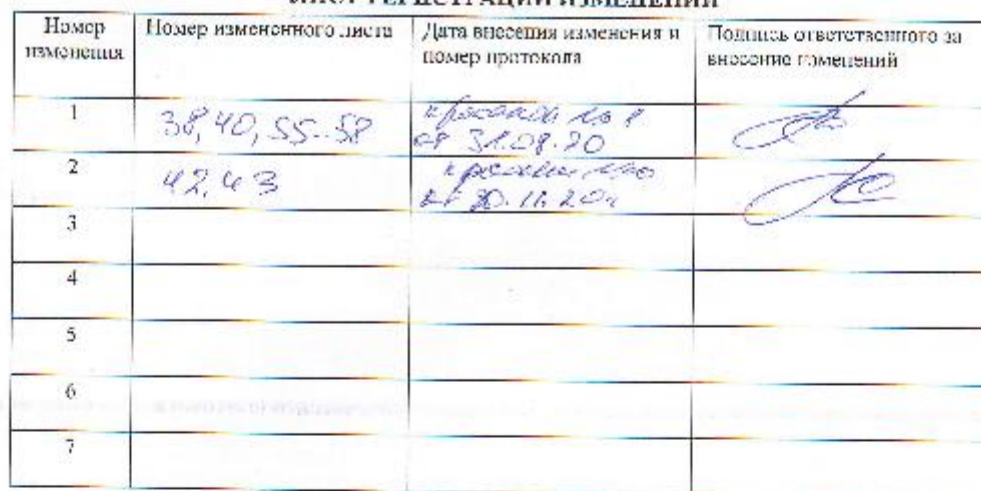 ЛИСТ РЕГИСТРАЦИИ ИЗМЕНЕНИЙ
Номер изменения
Номер измененного листа
Дата внесения изменения и номер протокола
Подпись ответственного за внесение изменений
1
38, 40, 55-58
от 31.08.20
2
42, 43
от 30.11.20г
3
4
5
6
7